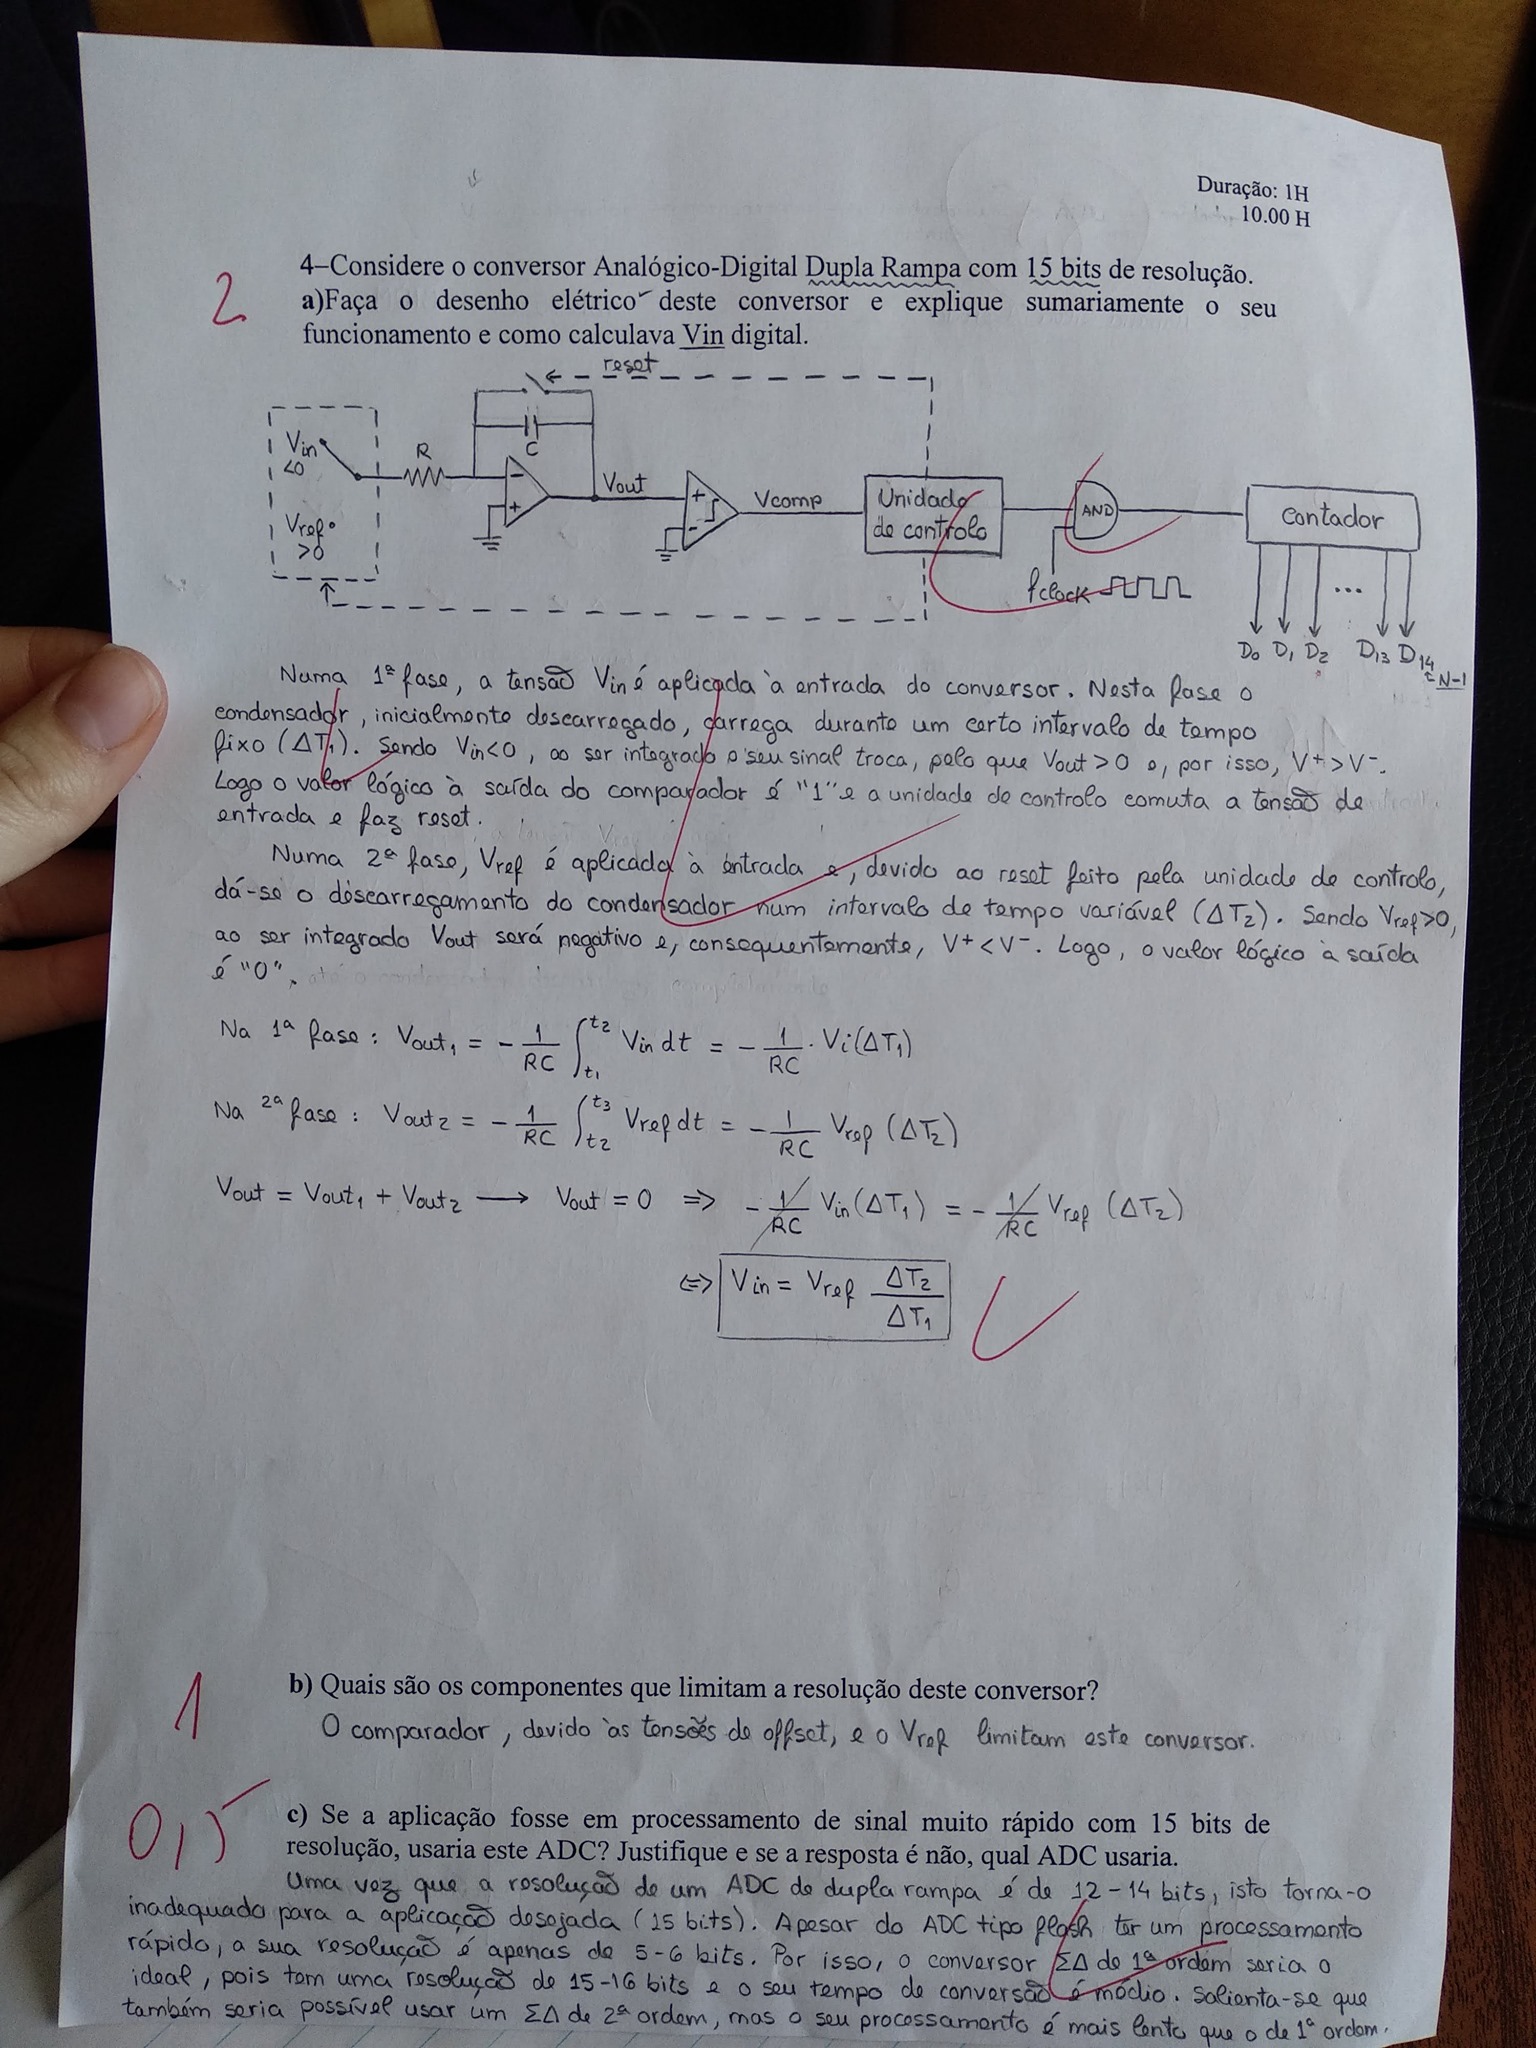 Duração: 1H
10.00 H
2
4–Considere o conversor Analógico-Digital Dupla Rampa com 15 bits de resolução.
a)Faça o desenho elétrico deste conversor e explique sumariamente o seu
funcionamento e como calculava Vin digital.
reset
Vin
<0
R
C
Vout
Vcomp
Unidade
de controlo
AND
Contador
Vref
>0
fclock
D0 D1 D2 ... D13 D14
= N-1
Numa 1ª fase, a tensão Vin é aplicada à entrada do conversor. Nesta fase o
condensador, inicialmente descarregado, carrega durante um certo intervalo de tempo
fixo (ΔT1). Sendo Vin<0, ao ser integrado o seu sinal troca, pelo que Vout>0 e, por isso, V+>V-.
Logo o valor lógico à saída do comparador é "1" e a unidade de controlo comuta a tensão de
entrada e faz reset.
Numa 2ª fase, Vref é aplicada à entrada e, devido ao reset feito pela unidade de controlo,
dá-se o descarregamento do condensador num intervalo de tempo variável (ΔT2). Sendo Vref>0,
ao ser integrado Vout será negativo e, consequentemente, V+<V-. Logo, o valor lógico à saída
é "0".
Na 1ª fase: Vout1 = - 1/RC ∫t1^t2 Vin dt = - 1/RC · Vi(ΔT1)
Na 2ª fase: Vout2 = - 1/RC ∫t2^t3 Vref dt = - 1/RC Vref (ΔT2)
Vout = Vout1 + Vout2 ⟶ Vout = 0 ⇒ - 1/RC Vin(ΔT1) = - 1/RC Vref (ΔT2)
⇔ Vin = Vref ΔT2/ΔT1
1
b) Quais são os componentes que limitam a resolução deste conversor?
O comparador, devido às tensões de offset, e o Vref limitam este conversor.
0,5
c) Se a aplicação fosse em processamento de sinal muito rápido com 15 bits de
resolução, usaria este ADC? Justifique e se a resposta é não, qual ADC usaria.
Uma vez que a resolução de um ADC de dupla rampa é de 12-14 bits, isto torna-o
inadequado para a aplicação desejada (15 bits). Apesar do ADC tipo flash ter um processamento
rápido, a sua resolução é apenas de 5-6 bits. Por isso, o conversor ΣΔ de 1ª ordem seria o
ideal, pois tem uma resolução de 15-16 bits e o seu tempo de conversão é médio. Salienta-se que
também seria possível usar um ΣΔ de 2ª ordem, mas o seu processamento é mais lento que o de 1ª ordem.